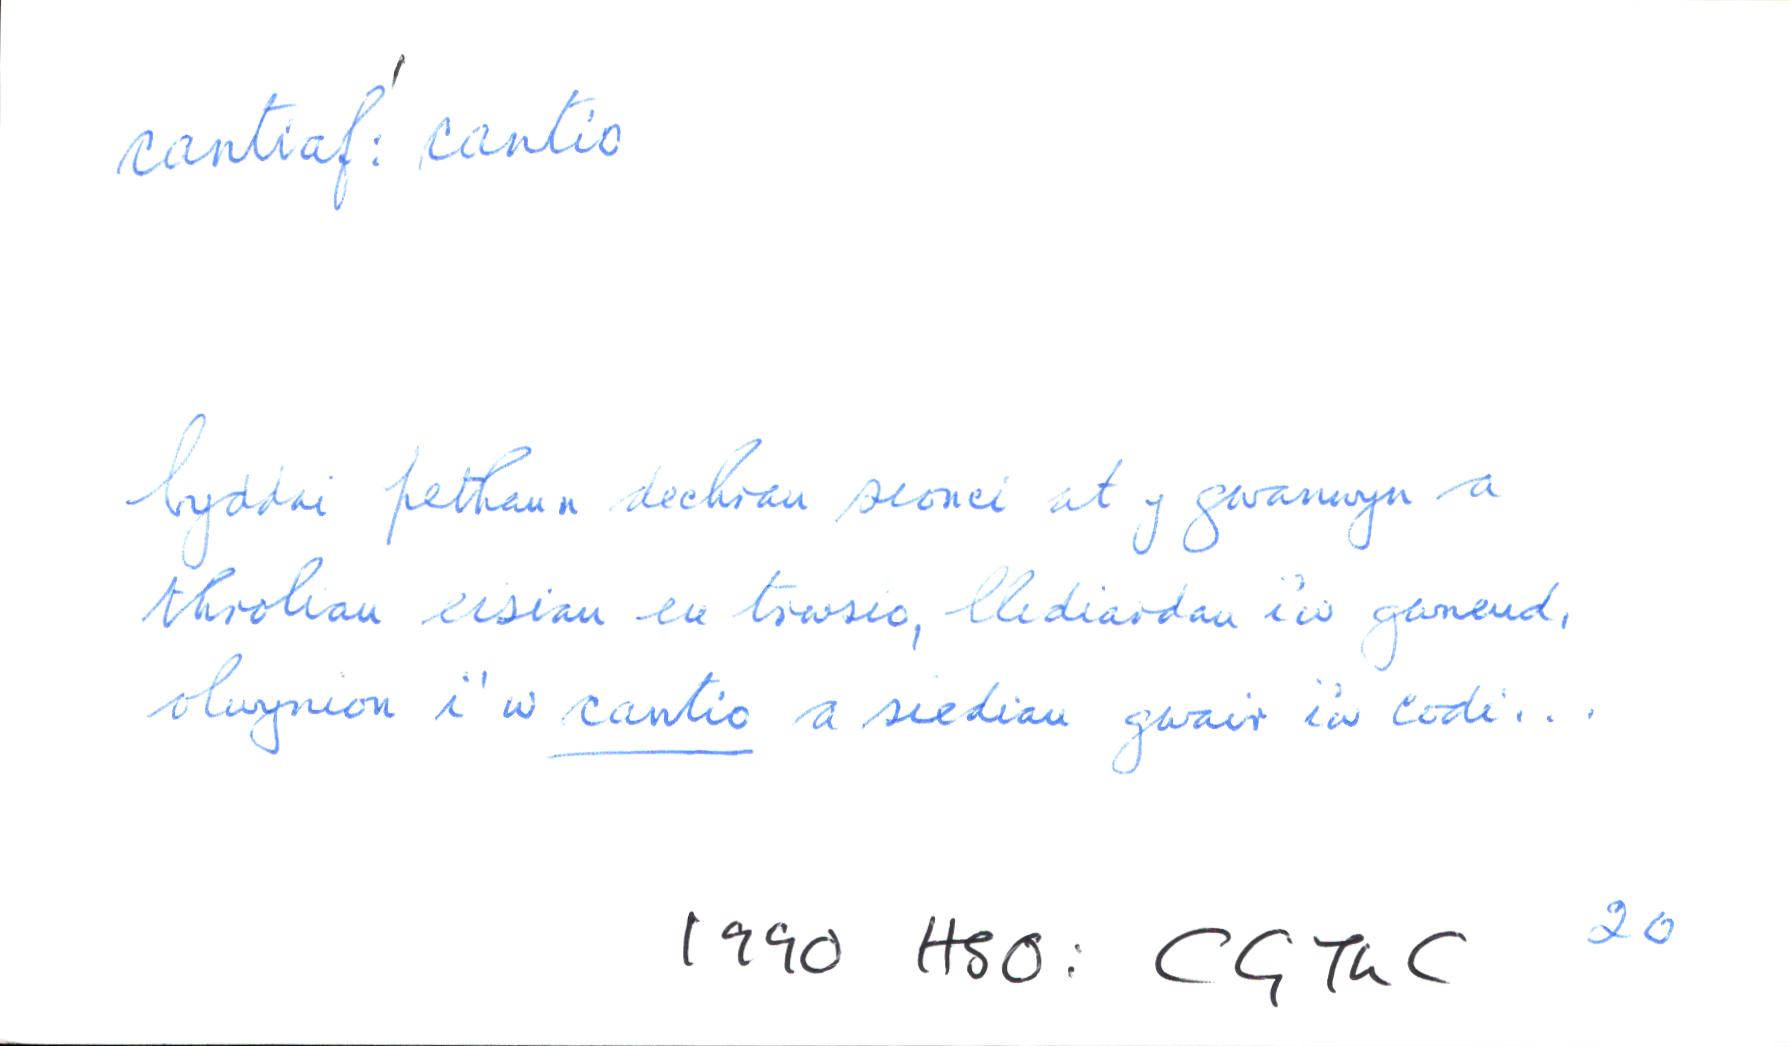 cantiaf: cantio
byddai pethau'n dechrau sionci at y gwanwyn a
throliau eisiau eu trwsio, llediardau i'w gwneud,
olwynion i'w cantio a siediau gwair i'w codi...
1990 HSO: CGThC 20